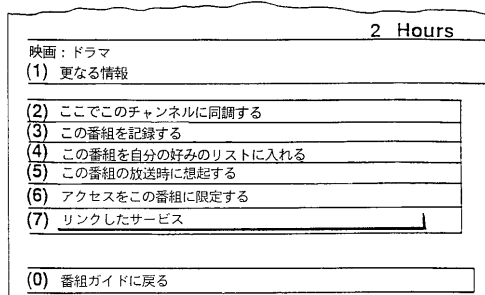 2 Hours
映画：ドラマ
(1) 更なる情報
(2) ここでこのチャンネルに同調する
(3) この番組を記録する
(4) この番組を自分の好みのリストに入れる
(5) この番組の放送時に想起する
(6) アクセスをこの番組に限定する
(7) リンクしたサービス
(0) 番組ガイドに戻る